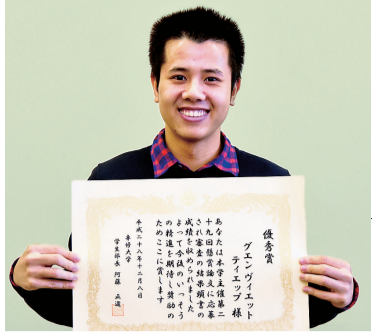 優秀賞
グエン ヴィエット
ティエップ 様
あなたは本学主催第二
十九回懸賞論文に応募
され審査の結果頭書の
成績を収められました
よって今後のいっそう
の精進を期待し奨励の
ためここに賞します
平成二十八年十二月八日
専修大学
学生部長 阿藤 正道